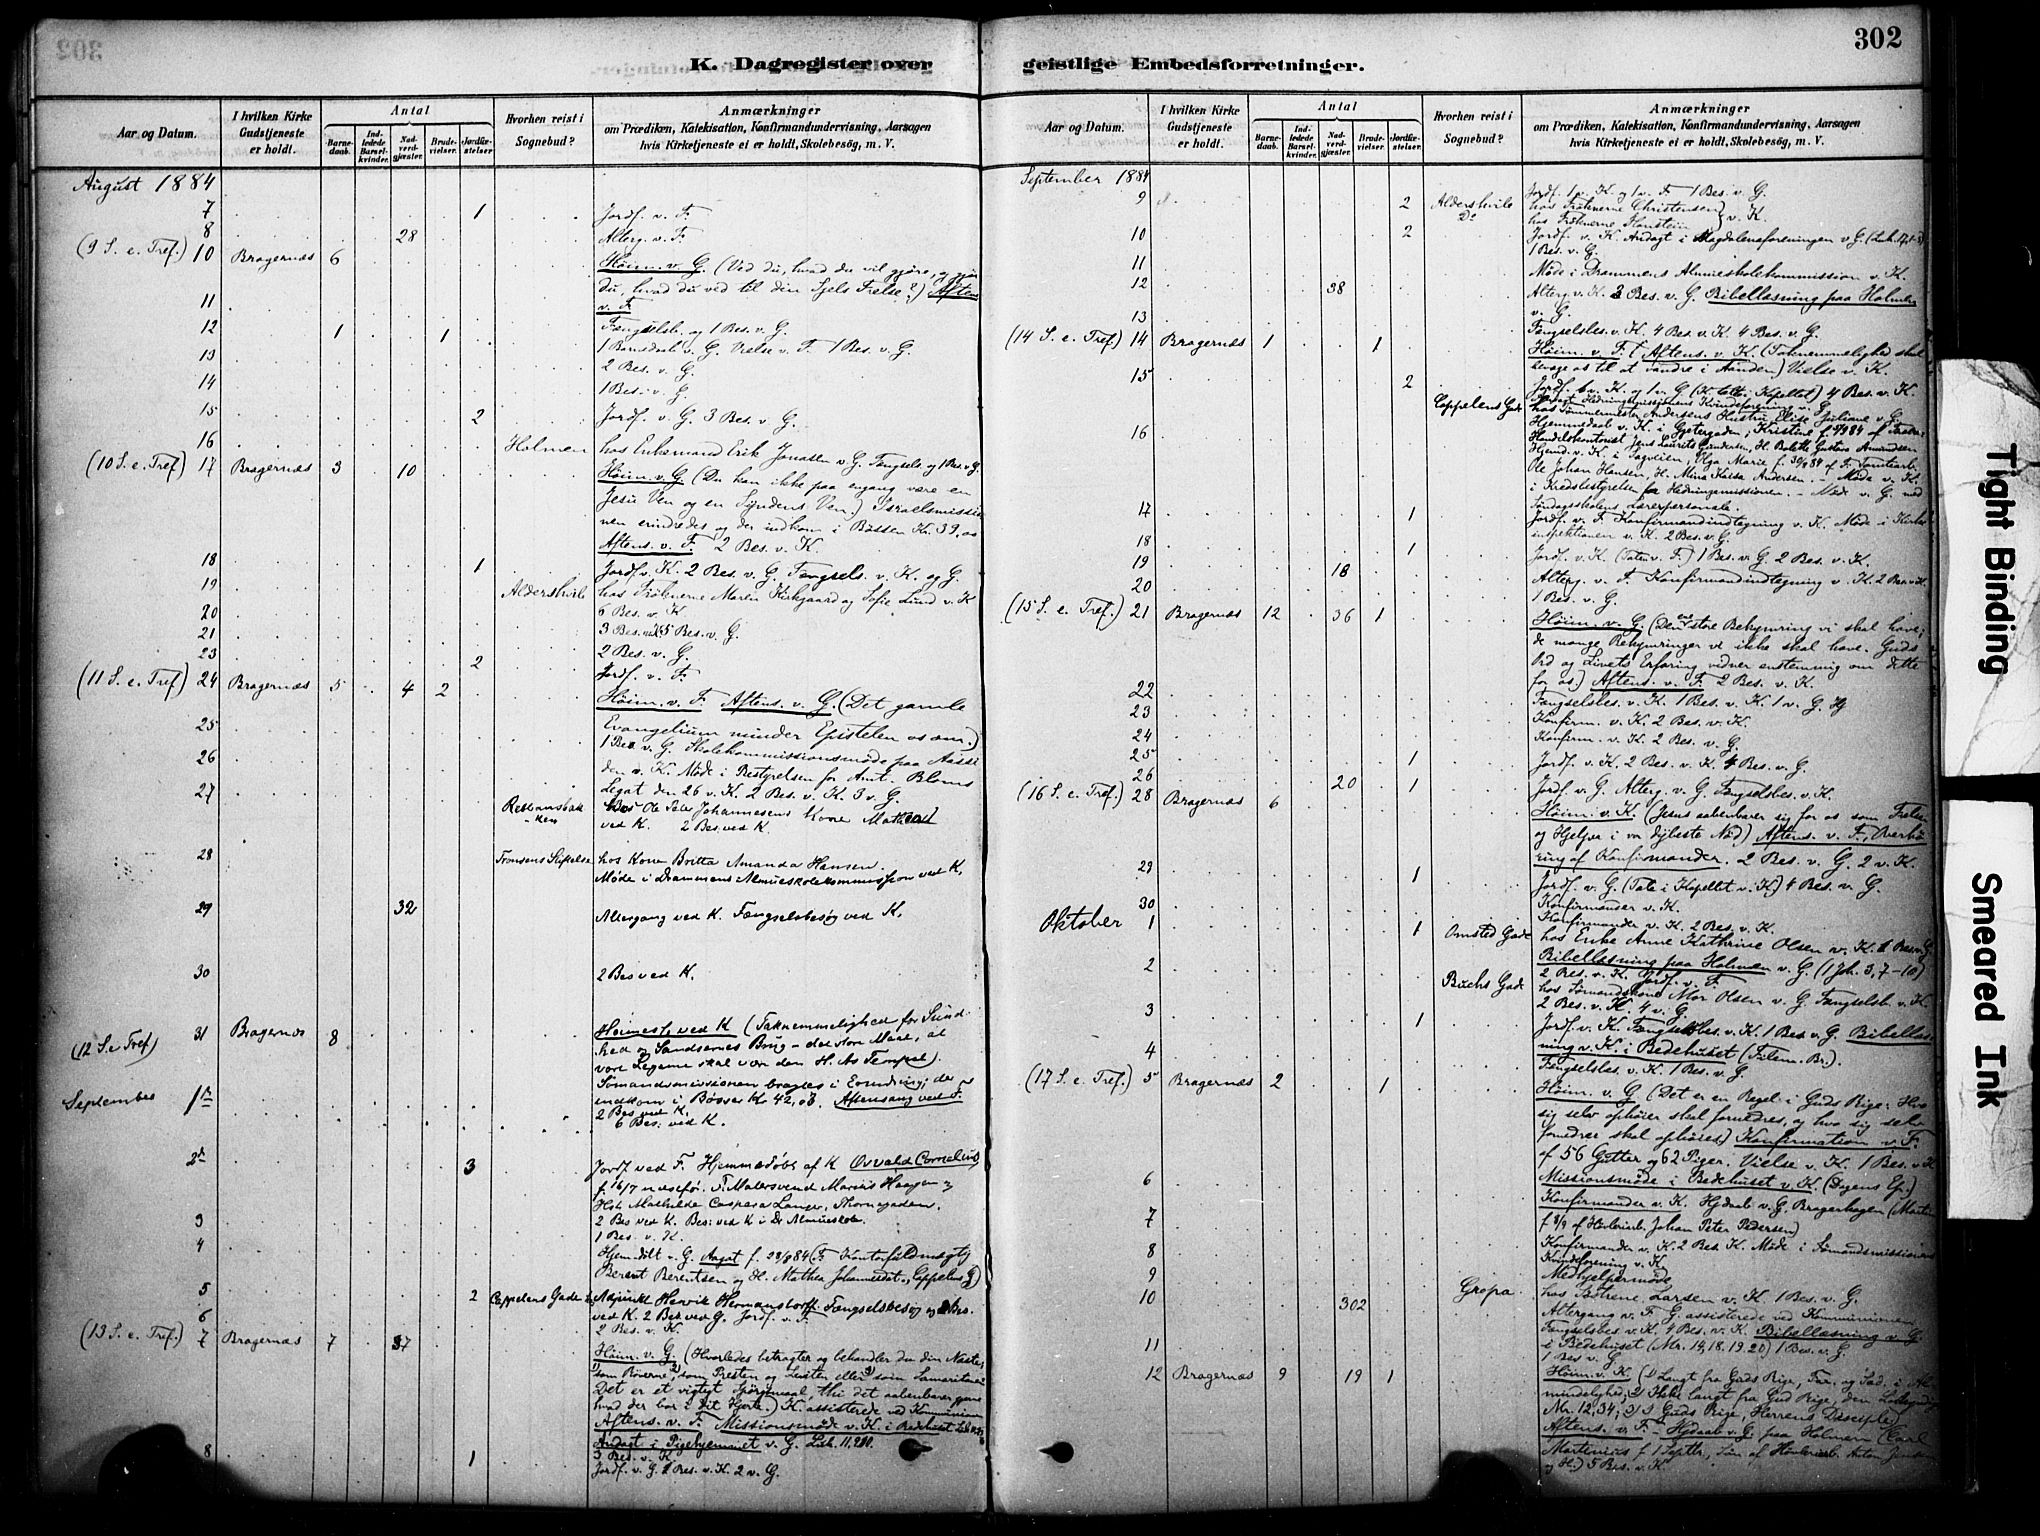 302
K. Dagregister over
Aar og Datum.
I hvilken Kirke Gudstjeneste er holdt.
Antal
Barnedaab.
Indledede Barselkvinder.
Nadverdgjæster.
Brudevielser.
Jordfæstelser.
Hvorhen reist i Sognebud?
Anmærkninger
om Prædiken, Katekisation, Konfirmandundervisning, Aarsagen
hvis Kirketjeneste ei er holdt, Skolebesøg, m. V.
August 1884
7 1 Jordf. v. F.
8 28 Alterg. v. F.
(9 S. e. Tref.) 10 Bragernæs 6 Høim. v. G. (Ved du, hvad du vil gjøre, og gjør
du, hvad du ved til din Sjels Frelse?) Aftens.
11 v. F.
12 1 1 Fængselsb. og 1 Bes. v. G.
1 Barnedaab v. G. Vielse v. F. 1 Bes. v. G.
13 2 Bes. v. G.
14 1 Bes. v. G.
15 2 Jordf. v. G. 3 Bes. v. G.
16 Holmen hos Enkemand Erik Jonassen v. G. Fængsels. og 1 Bes. v. G.
(10 S. e. Tref.) 17 Bragernæs 3 10 Høim. v. G. (Du kan ikke paa engang være en
Jesu Ven og en Syndens Ven.) Israelsmissio
nen erindredes og der indkom i Bøssen Kr. 39,00
Aftens. v. F. 2 Bes. v. K.
18 1 Jordf. v. K. 2 Bes. v. G. Fængsels. v. K. og G.
19 Aldershvile hos Frøknerne Maren Kirkgaard og Sofie Lund v. K
20 6 Bes. v. K
21 3 Bes. v. K. 5 Bes. v. G.
23 2 2 Bes. v. G.
Jordf. v. F.
(11 S. e. Tref.) 24 Bragernæs 5 4 2 Høim. v. F. Aftens. v. G. (Det gamle
25 Evangelium minder Epistelen os om.)
1 Bes. v. G. Skolekommissionsmøde paa Assi
26 den v. K. Møde i Bestyrelsen for Ant. Bloms
27 Legat den 26 v. K. 2 Bes. v. K. 3 v. G.
hos Ole Peter Johannesens Kone Mathea
ved K. 2 Bes. ved K.
28 Tronsens Stiftelse hos Kone Britta Amanda Hansen.
Møde i Drammens Almueskolekommission ved K.
29 32 Altergang ved K. Fængselsbesøg ved K.
30 2 Bes ved K.
(12 S. e Tref) 31 Bragernæs 8 Høimes. ved K (Taknemmelighed for Sund-
hed og Sandsernes Brug - det store Maal, at
vore Legeme skal være den H. As Tempel).
Sømandsmissionen bragtes i Erindring; der
September 1ste indkom i Bøsser Kr 42,03. Aftensang ved F.
2 Bes ved K.
6 Bes: ved K.
2d 3 Jordf ved F. Hjemmedøbt af K Osvald Cornelius
f. 16/7 Malersvend Marius Haagen og
H. Mathilde Caspara Langer, Thornegaden.
2 Bes ved K. Bes: ved K i Dr Almueskole.
3 1 Bes. v. K.
4 Hjemdøbt v. G. Aagot f. 28/8 84 (F. Kontorfuldmægtig
Berent Berentsen og H. Mathea Johannesdat., Cappelens G.)
5 2 Cappelens Gade Adjunkt Henrik Hermanstorff. Fængselsbesøg og 2 Bes.
6 ved K. 2 Bes. ved G. Jordf. v. F.
2 Bes. v. K.
(13 S. e. Tref.) 7 Bragernæs 7 37 Høim. v. G. (Hvorledes betragter og behandler du din Næste,
som Røverne, som Presten og Leviten eller som Samaritanen?
Det er et vigtigt Spørgsmaal, thi det aabenbarer gjerne
hvad der bor i dit Hjerte.) K. assisterede ved Kommunionen
Aftens. v. F. Missionsmøde v. K. i Bedehuset
Andagt i Pigehjemmet v. G. Luk. 11,
8 1 3 Bes. v. K.
Jordf. v. G. 2 Bes. v. K. 2 v. G.
302
geistlige Embedsforretninger.
Aar og Datum.
I hvilken Kirke Gudstjeneste er holdt.
Antal
Barnedaab.
Indledede Barselkvinder.
Nadverdgjæster.
Brudevielser.
Jordfæstelser.
Hvorhen reist i Sognebud?
Anmærkninger
om Prædiken, Katekisation, Konfirmandundervisning, Aarsagen
hvis Kirketjeneste ei er holdt, Skolebesøg, m. V.
September 1884
Jordf. 1 v. K og 1 v. F. 1 Bes. v. G.
9 2 Aldershvile hos Frøknerne Christensen
Do hos Frøknerne Honstein v. K.
10 2 Jordf. v. K. Andagt i Magdalenaforeningen v. G.
1 Bes. v. G.
11 Møde i Drammens Almueskolekommission v. K.
12 38 Alterg. v. K. 3 Bes. v. G. Bibellæsning paa Holmen
13 v. G.
Fængselsbes. v. K. 4 Bes. v. K. 4 Bes. v. G.
(14 S. e. Tref) 14 Bragernæs 1 1 Høim. v. F. Aftens. v. K. (Taknemmelighed skal
bevæge os til at vandre i Aanden.) Vielse v. K.
15 2 Jordf. 1 v. K. og 1 v. G. 4 Bes. v. K.
Andagt Hedningemissionens Kvindeforening v. G
Cappelens Gade hos Tømmermester Andersens Hustru Elise Juliane v. G.
16 Hjemmedaab v. K. i Gjetergaden, Kristine
Handelskontorist Jens Laurits Gundersen, H. Bolette Gustava Amundsen
Hjemd. v. K. i Søgveien; Olga Marie f. 30/8 84 af F. Tomtearb.
Ole Johan Hansen, H. Mina Kaisa Andersen. - Møde v. K.
i Kredsbestyrelsen for Hedningemissionen. - Møde v. G. med
Søndagsskolens Lærerpersonale.
17 1 Jordf. v. F. Konfirmandindtegning v. K. Møde i Kirke
inspektionen v. K. 2 Bes. v. G.
18 1 Jordf. v. K. (Talen v. F.) 1 Bes. v. G. 2 Bes. v. K.
19 18 Alterg. v. F. Konfirmandindtegning v. K. 2 Bes. v. K.
20 1 Bes. v. G.
(15 S. e. Tref.) 21 Bragernæs 12 36 1 Høim. v. G. (Den ene store Bekymring vi skal have;
de mange Bekymringer vi ikke skal have. Guds
Ord og Livets Erfaring vidner enstemmig om dette
for os.) Aftens. v. F. 2 Bes. v. K.
22 Fængselsbes. v. K. 1 Bes. v. K. 1 v. G.
23 Konfirm. v. K. 2 Bes. v. K.
24 Konfirm. v. K. 2 Bes. v. G.
25 1 Jordf. v. K. 2 Bes. v. K. 4 Bes. v. G.
26 20 1 Jordf. v. G. Alterg. v. G. Fængselsbes. v. K.
(16 S. e. Tref.) 28 Bragernæs 6 Høim. v. K. (Jesus aabenbarer sig for os som Frelser
og Hjelper i vor dybeste Nød) Aftens. v. F., Overhø-
ring af Konfirmander. 2 Bes. v. G. 2 v. K.
29 1 Jordf. v. G. (Tale i Kapellet v. K.) 4 Bes. v. G.
30 Konfirmander v. K.
Oktober 1 1 Konfirmander v. K. 2 Bes. v. K.
Omsted Gade hos Enke Anne Kathrine Olsen v. K. 1 Bes. v. G.
2 Bibellæsning paa Holmen v. G. (1 Joh. 3, 7-10)
2 Bes. v. K. Jordf. v. F.
Buchs Gade hos Sømandskone Mor Olsen v. G. Fængselsb. v. K.
3 1 2 Bes. v. K. 4 v. G.
Jordf. v. K. Fængselsbes. v. K. 1 Bes v. G. Bibellæs-
4 ning v. K. i Bedehuset (Filem. Br.).
Fængselsbes. v. K. 1 Bes. v. G.
(17 S. e. Tref.) 5 Bragernæs 2 1 Høim. v. G (Det er en Regel i Guds Rige: Hvo
sig selv ophøier skal fornedres, og hvo sig selv
fornedrer skal ophøies.) Konfirmation v. F.
af 56 Gutter og 62 Piger. Vielse v. K. 1 Bes. v. K
6 Missionsmøde i Bedehuset v. K. (Dagens Ep.)
Konfirmander v. K. Hjdaab v. G. Bragerhagen (Martin
7 f 8/9 af Høvleriarb. Johan Peter Pedersen)
8 Konfirmander v. K. 2 Bes. K. Møde i Sømandsmissionens
Kvindeforening v. K.
9 Medhjelpermøde
10 302 Gropa hos Bøtrene Larsen v. K. 1 Bes. v. G.
Altergang v. F. G. assisterede ved Kommunionen
Fængselsbes v. K. 4 Bes. v. K. Bibellæsning v. G.
11 i Bedehuset (Mr. 14, 18. 19. 20) 1 Bes. v. G.
1 Bes v. G.
12 Bragernæs 9 19 1 Høim. v. K. (1) Langt fra Guds Rige, Fax, og Sad. i Al
mindelighed; 2) Ikke langt fra Guds Rige, den Lovkyndige
Mr. 12, 34; 3) I Guds Rige, Herrens Disciple)
Aftens. v. F. - Hjdaab v. G. paa Holmen (Carl
Martinius f. 1 Septbr., Søn af Høvleriarb. Anton Jensen
og H.) 5 Bes. v. K.
Tight Binding
Smeared Ink